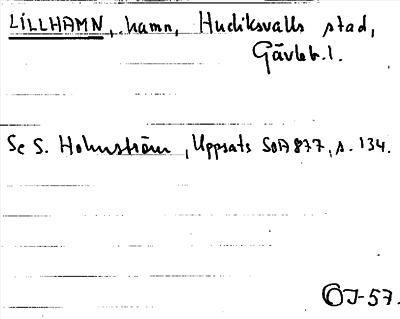 LILLHAMN, hamn, Hudiksvalls stad,
Gävleb. l.
Se S. Holmström, Uppsats SOA 877, s. 134.
OJ-57.